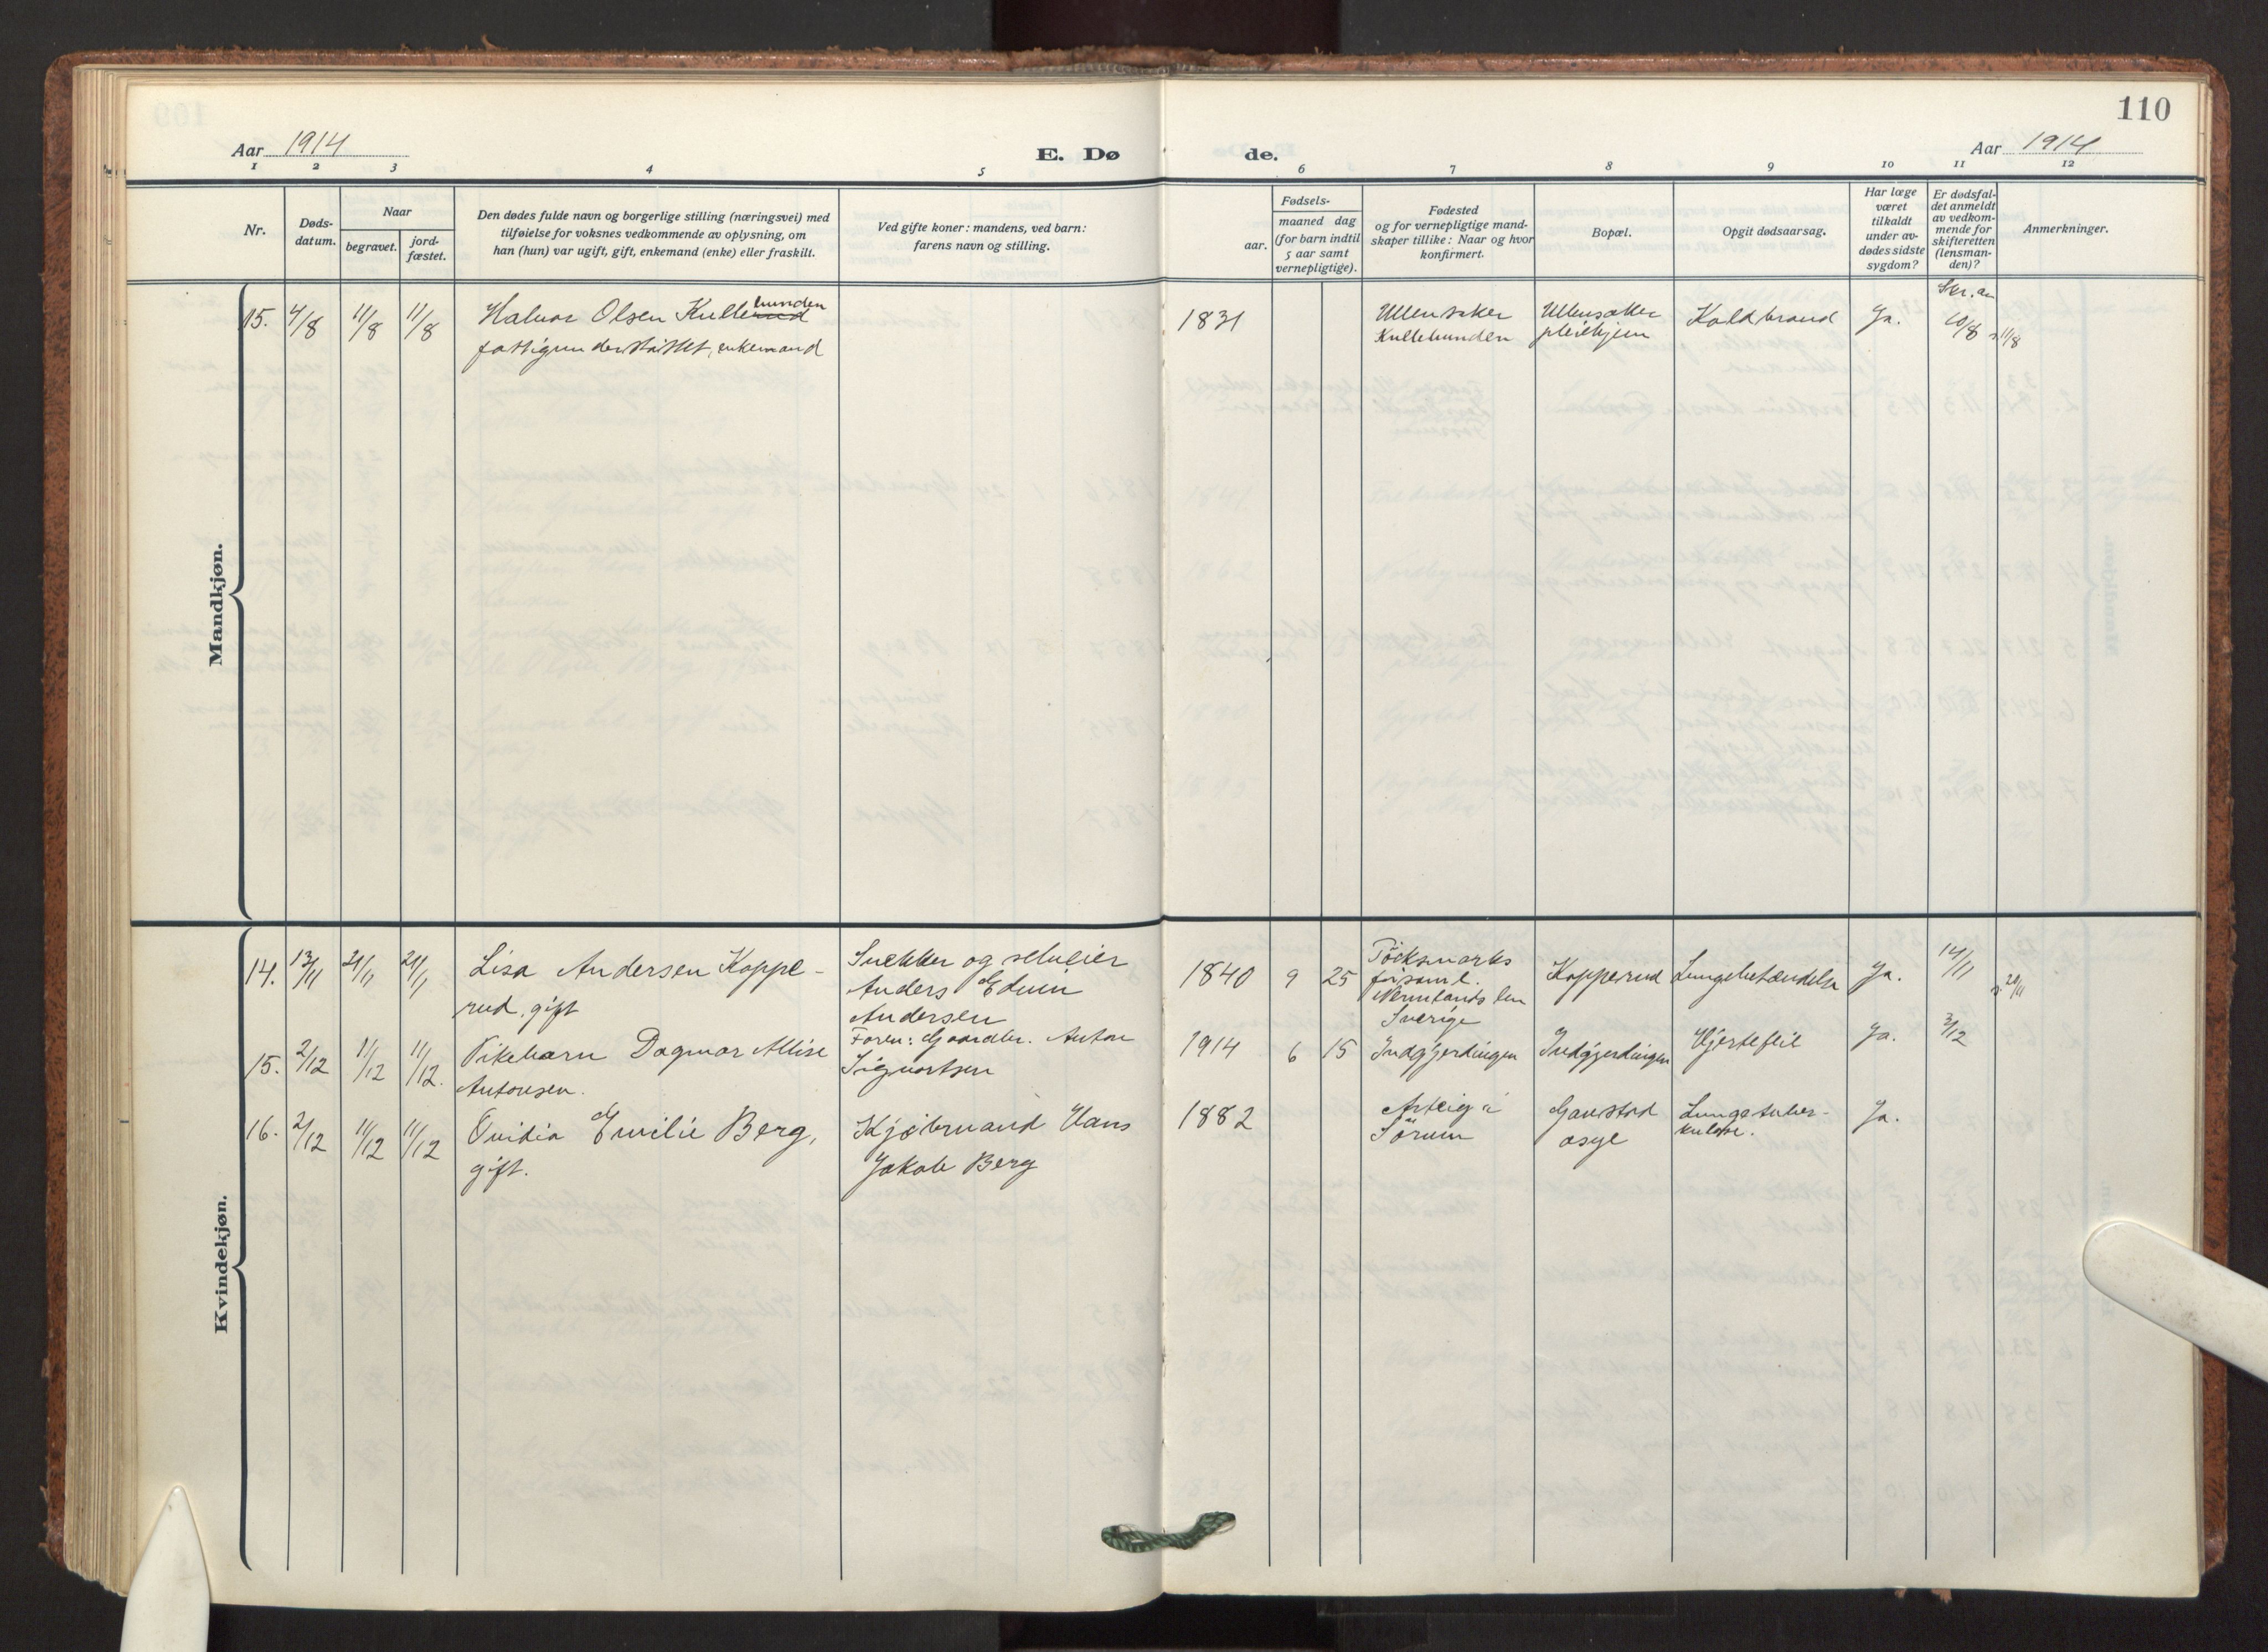 110
Aar 1914
E. Dø de.
Aar 1914
1 2 3 4 5 6 7 8 9 10 11 12
Nr.
Døds-
datum.
Naar
begravet.
jord-
fæstet.
Den dødes fulde navn og borgerlige stilling (næringsvei) med
tilføielse for voksnes vedkommende av oplysning, om
han (hun) var ugift, gift, enkemand (enke) eller fraskilt.
Ved gifte koner: mandens, ved barn:
farens navn og stilling.
Fødsels-
aar.
maaned dag
(for barn indtil
5 aar samt
vernepligtige).
Fødested
og for vernepligtige mand-
skaper tillike: Naar og hvor
konfirmert.
Bopæl.
Opgit dødsaarsag.
Har læge
været
tilkaldt
under av-
dødes sidste
sygdom?
Er dødsfal-
det anmeldt
av vedkom-
mende for
skifteretten
(lensman-
den)?
Anmerkninger.
Mandkjøn.
15. 4/8 11/8 11/8
Halvor Olsen Kullerud
bunden
fattigunderstøttet, enkemand
1831
Ullensaker
Kullebunden
Ullensaker
pleiehjem
Koldbrand
Ja.
10/8
11/8
Kvindekjøn.
14. 13/11 21/11 21/11
Lisa Andersen Koppe-
rud, gift
Snekker og selveier
Anders Edvin
Andersen
1840 9 25
Töcksmarks
församl.
Vermlands len
Sverige
Kopperud
Lungebetændelse
Ja.
14/11
20/11
15. 2/12 11/12 11/12.
Pikebarn Dagmar Alise
Antonsen.
Faren: Gaardbr. Anton
Sigvartsen
1914 6 15
Indgjerdingen
Indgjerdingen
Hjertefeil
Ja.
3/12
16. 2/12 11/12 11/12
Ovidia Emilie Berg,
gift.
Kjøbmand Hans
Jakob Berg
1882
Arteig i
Sörum
Gaustad
asyl
Lungetuber-
kulose.
Ja.